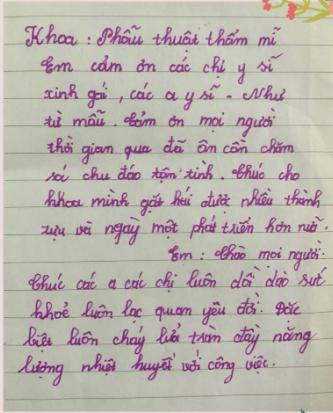 Khoa : Phẫu thuật thẩm mĩ
Em cảm ơn các chị y sĩ
xinh gái , các a y sĩ - Như
từ mẫu . Cảm ơn mọi người
thời gian qua đã ân cần chăm
sóc chu đáo tận tình . Chúc cho
khoa mình gặt hái được nhiều thành
tựu và ngày một phát triển hơn nữa .
Em : Chào mọi người .
Chúc các a các chị luôn dồi dào sức
khoẻ luôn lạc quan yêu đời . Đặc
biệt luôn cháy lửa tràn đầy năng
lượng nhiệt huyết với công việc .